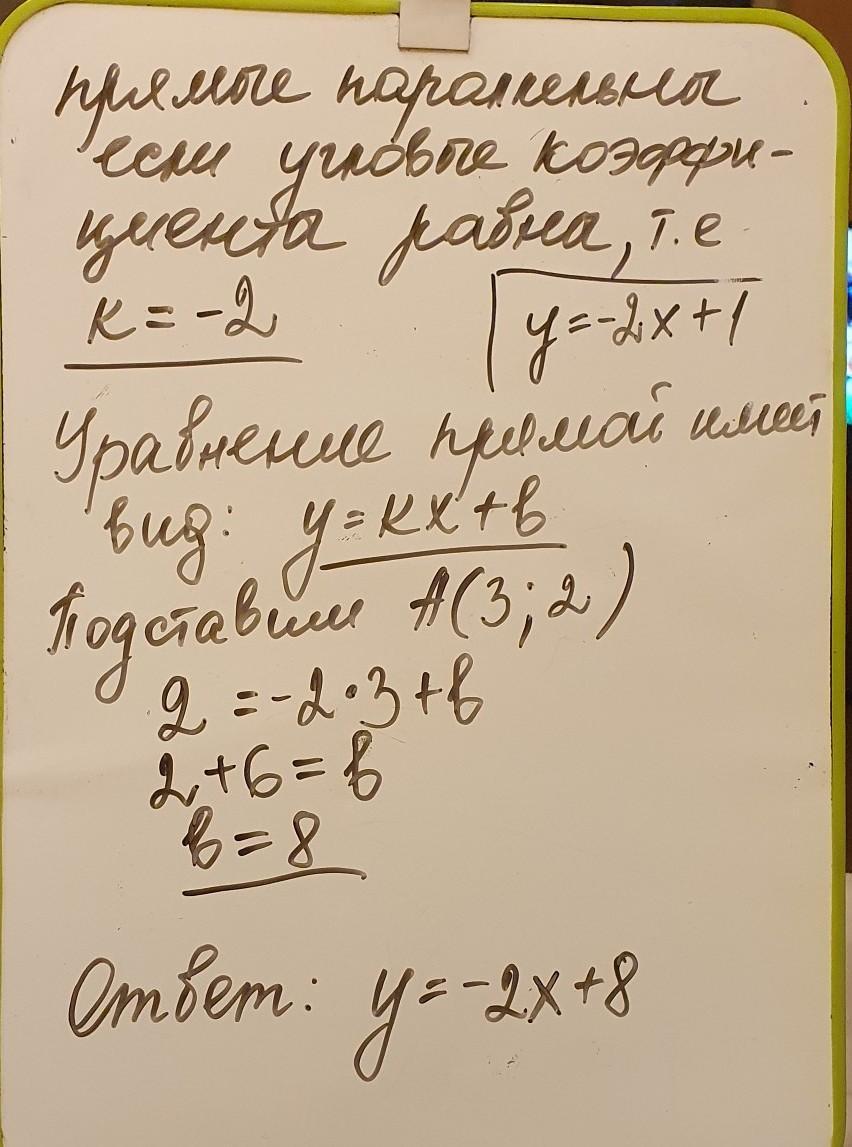 прямые параллельны
если угловые коэффи-
циента равна, т.е
к = -2
y=-2x+1
Уравнение прямой имеет
вид: y=кx+в
Подставим A(3;2)
2 =-2·3+в
2+6=в
в=8
Ответ: y=-2x+8